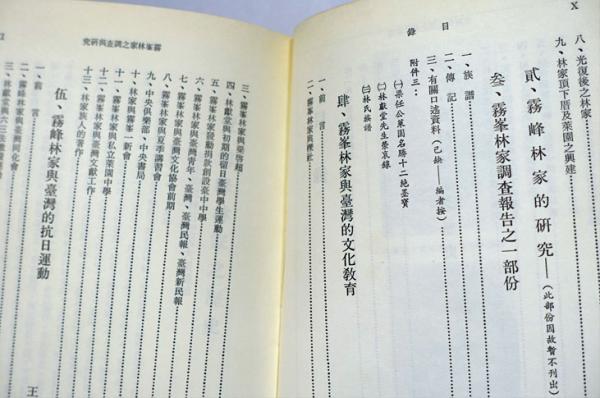 X
目錄
八、光復後之林家
九、林家頂下厝及萊園之興建
貳、霧峰林家的研究——(此部份因故暫不刊出)
叁、霧峯林家調查報告之一部份
一、族譜
二、傳記
三、有關口述資料(已缺——編者按)
附件三:
㈠梁任公萊園名勝十二絕墨寶
㈡林獻堂先生榮哀錄
㈢林氏族譜
肆、霧峯林家與臺灣的文化教育
一、前言
二、霧峯林家與櫟社
霧峯林家之調查與研究
三、霧峯林家與梁啓超
四、林獻堂與初期的留日臺灣學生運動
五、霧峯林家發動捐款創設臺中中學
六、霧峯林家與臺灣青年、臺灣、臺灣民報、臺灣新民報
七、霧峯林家與臺灣文化協會前期
八、霧峯林家與夏季講習會
九、中央俱樂部、中央書局
十、霧峯林家與一新會
十一、霧峯林家與私立萊園中學
十二、霧峯林家與臺灣文獻工作
十三、林家族人的著作
伍、霧峰林家與臺灣的抗日運動
王
一、前言
二、霧峰林家與臺灣同化會
三、林獻堂與六三法撤廢運動